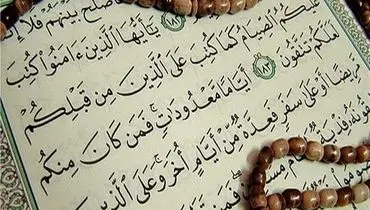 فَأَصْلَحَ بَيْنَهُمْ فَلَآ إِثْمَ
١٨٢ يَٰٓأَيُّهَا ٱلَّذِينَ ءَامَنُوا۟ كُتِبَ
عَلَيْكُمُ ٱلصِّيَامُ كَمَا كُتِبَ عَلَى ٱلَّذِينَ مِن قَبْلِكُمْ
لَعَلَّكُمْ تَتَّقُونَ ١٨٣ أَيَّامًا مَّعْدُودَٰتٍ فَمَن كَانَ مِنكُم
مَّرِيضًا أَوْ عَلَىٰ سَفَرٍ فَعِدَّةٌ مِّنْ أَيَّامٍ أُخَرَ وَعَلَى ٱلَّذِينَ
يُطِيقُونَهُۥ فِدْيَةٌ طَعَامُ مِسْكِينٍ فَمَن
تَصُومُوا۟